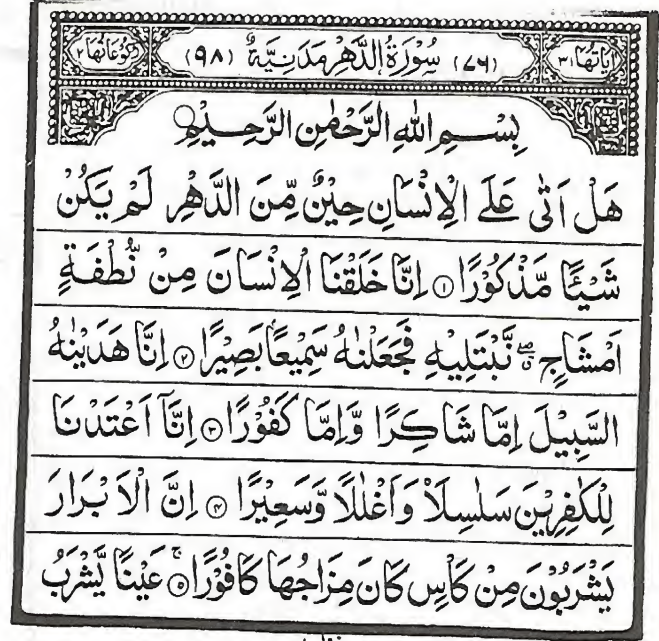 اٰیَاتُهَا ٣١ (٧٦) سُوْرَةُ الدَّهْرِ مَدَنِيَّةٌ (٩٨) رُكُوْعَاتُهَا ٢
بِسْمِ اللّٰهِ الرَّحْمٰنِ الرَّحِيْمِ
هَلْ اَتٰى عَلَى الْاِنْسَانِ حِيْنٌ مِّنَ الدَّهْرِ لَمْ يَكُنْ
شَيْـًٔا مَّذْكُوْرًا ۝١ اِنَّا خَلَقْنَا الْاِنْسَانَ مِنْ نُّطْفَةٍ
اَمْشَاجٍ ۖ نَّبْتَلِيْهِ فَجَعَلْنٰهُ سَمِيْعًۢا بَصِيْرًا ۝٢ اِنَّا هَدَيْنٰهُ
السَّبِيْلَ اِمَّا شَاكِرًا وَّاِمَّا كَفُوْرًا ۝٣ اِنَّآ اَعْتَدْنَا
لِلْكٰفِرِيْنَ سَلٰسِلَا۟ وَاَغْلٰلًا وَّسَعِيْرًا ۝٤ اِنَّ الْاَبْرَارَ
يَشْرَبُوْنَ مِنْ كَاْسٍ كَانَ مِزَاجُهَا كَافُوْرًا ۝٥ عَيْنًا يَّشْرَبُ